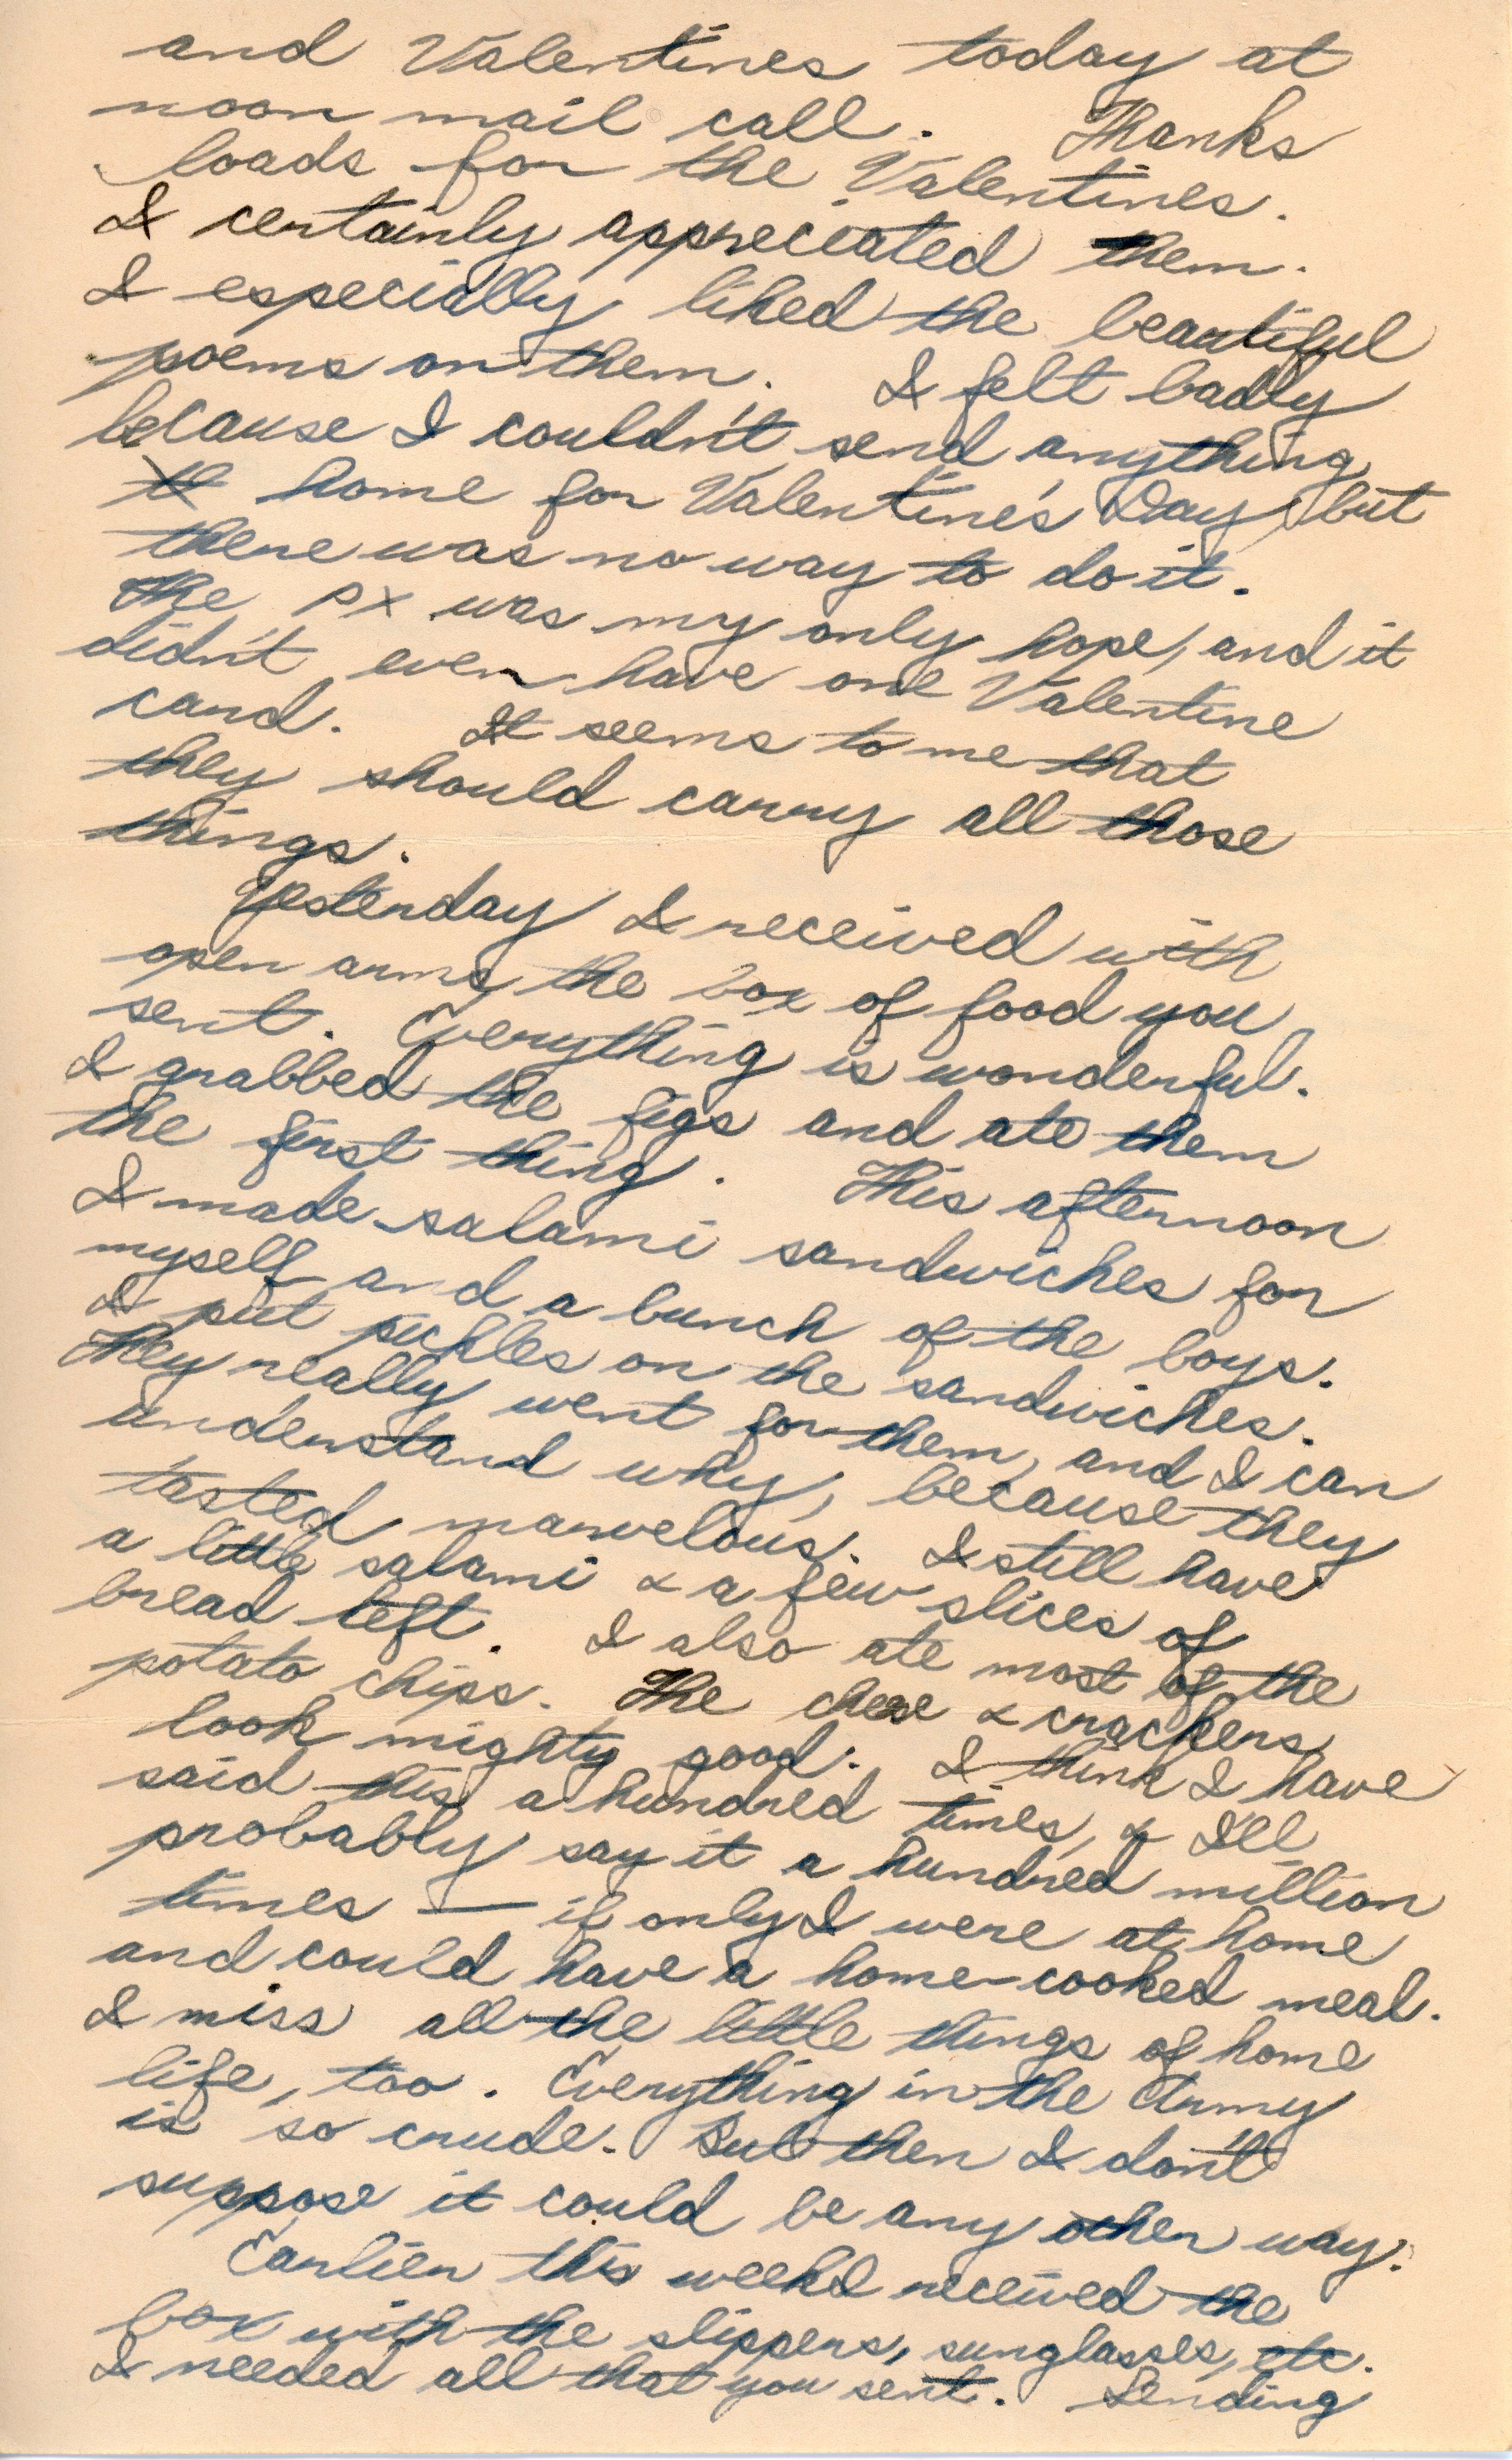 and Valentines today at
noon mail call. Thanks
loads for the Valentines.
I certainly appreciated them.
I especially liked the beautiful
poems on them. I felt badly
because I couldn't send anything
home for Valentine's Day, but
there was no way to do it.
The PX was my only hope, and it
didn't even have one Valentine
card. It seems to me that
they should carry all those
things.
Yesterday I received with
open arms the box of food you
sent. Everything is wonderful.
I grabbed the figs and ate them
the first thing. This afternoon
I made salami sandwiches for
myself and a bunch of the boys.
I put pickles on the sandwiches.
They really went for them, and I can
understand why, because they
tasted marvelous. I still have
a little salami & a few slices of
bread left. I also ate most of the
potato chips. The cheese & crackers
look mighty good. I think I have
said this a hundred times, & I'll
probably say it a hundred million
times — if only I were at home
and could have a home-cooked meal.
I miss all the little things of home
life, too. Everything in the Army
is so crude. But then I don't
suppose it could be any other way.
Earlier this week I received the
box with the slippers, sunglasses, etc.
I needed all that you sent. Sending